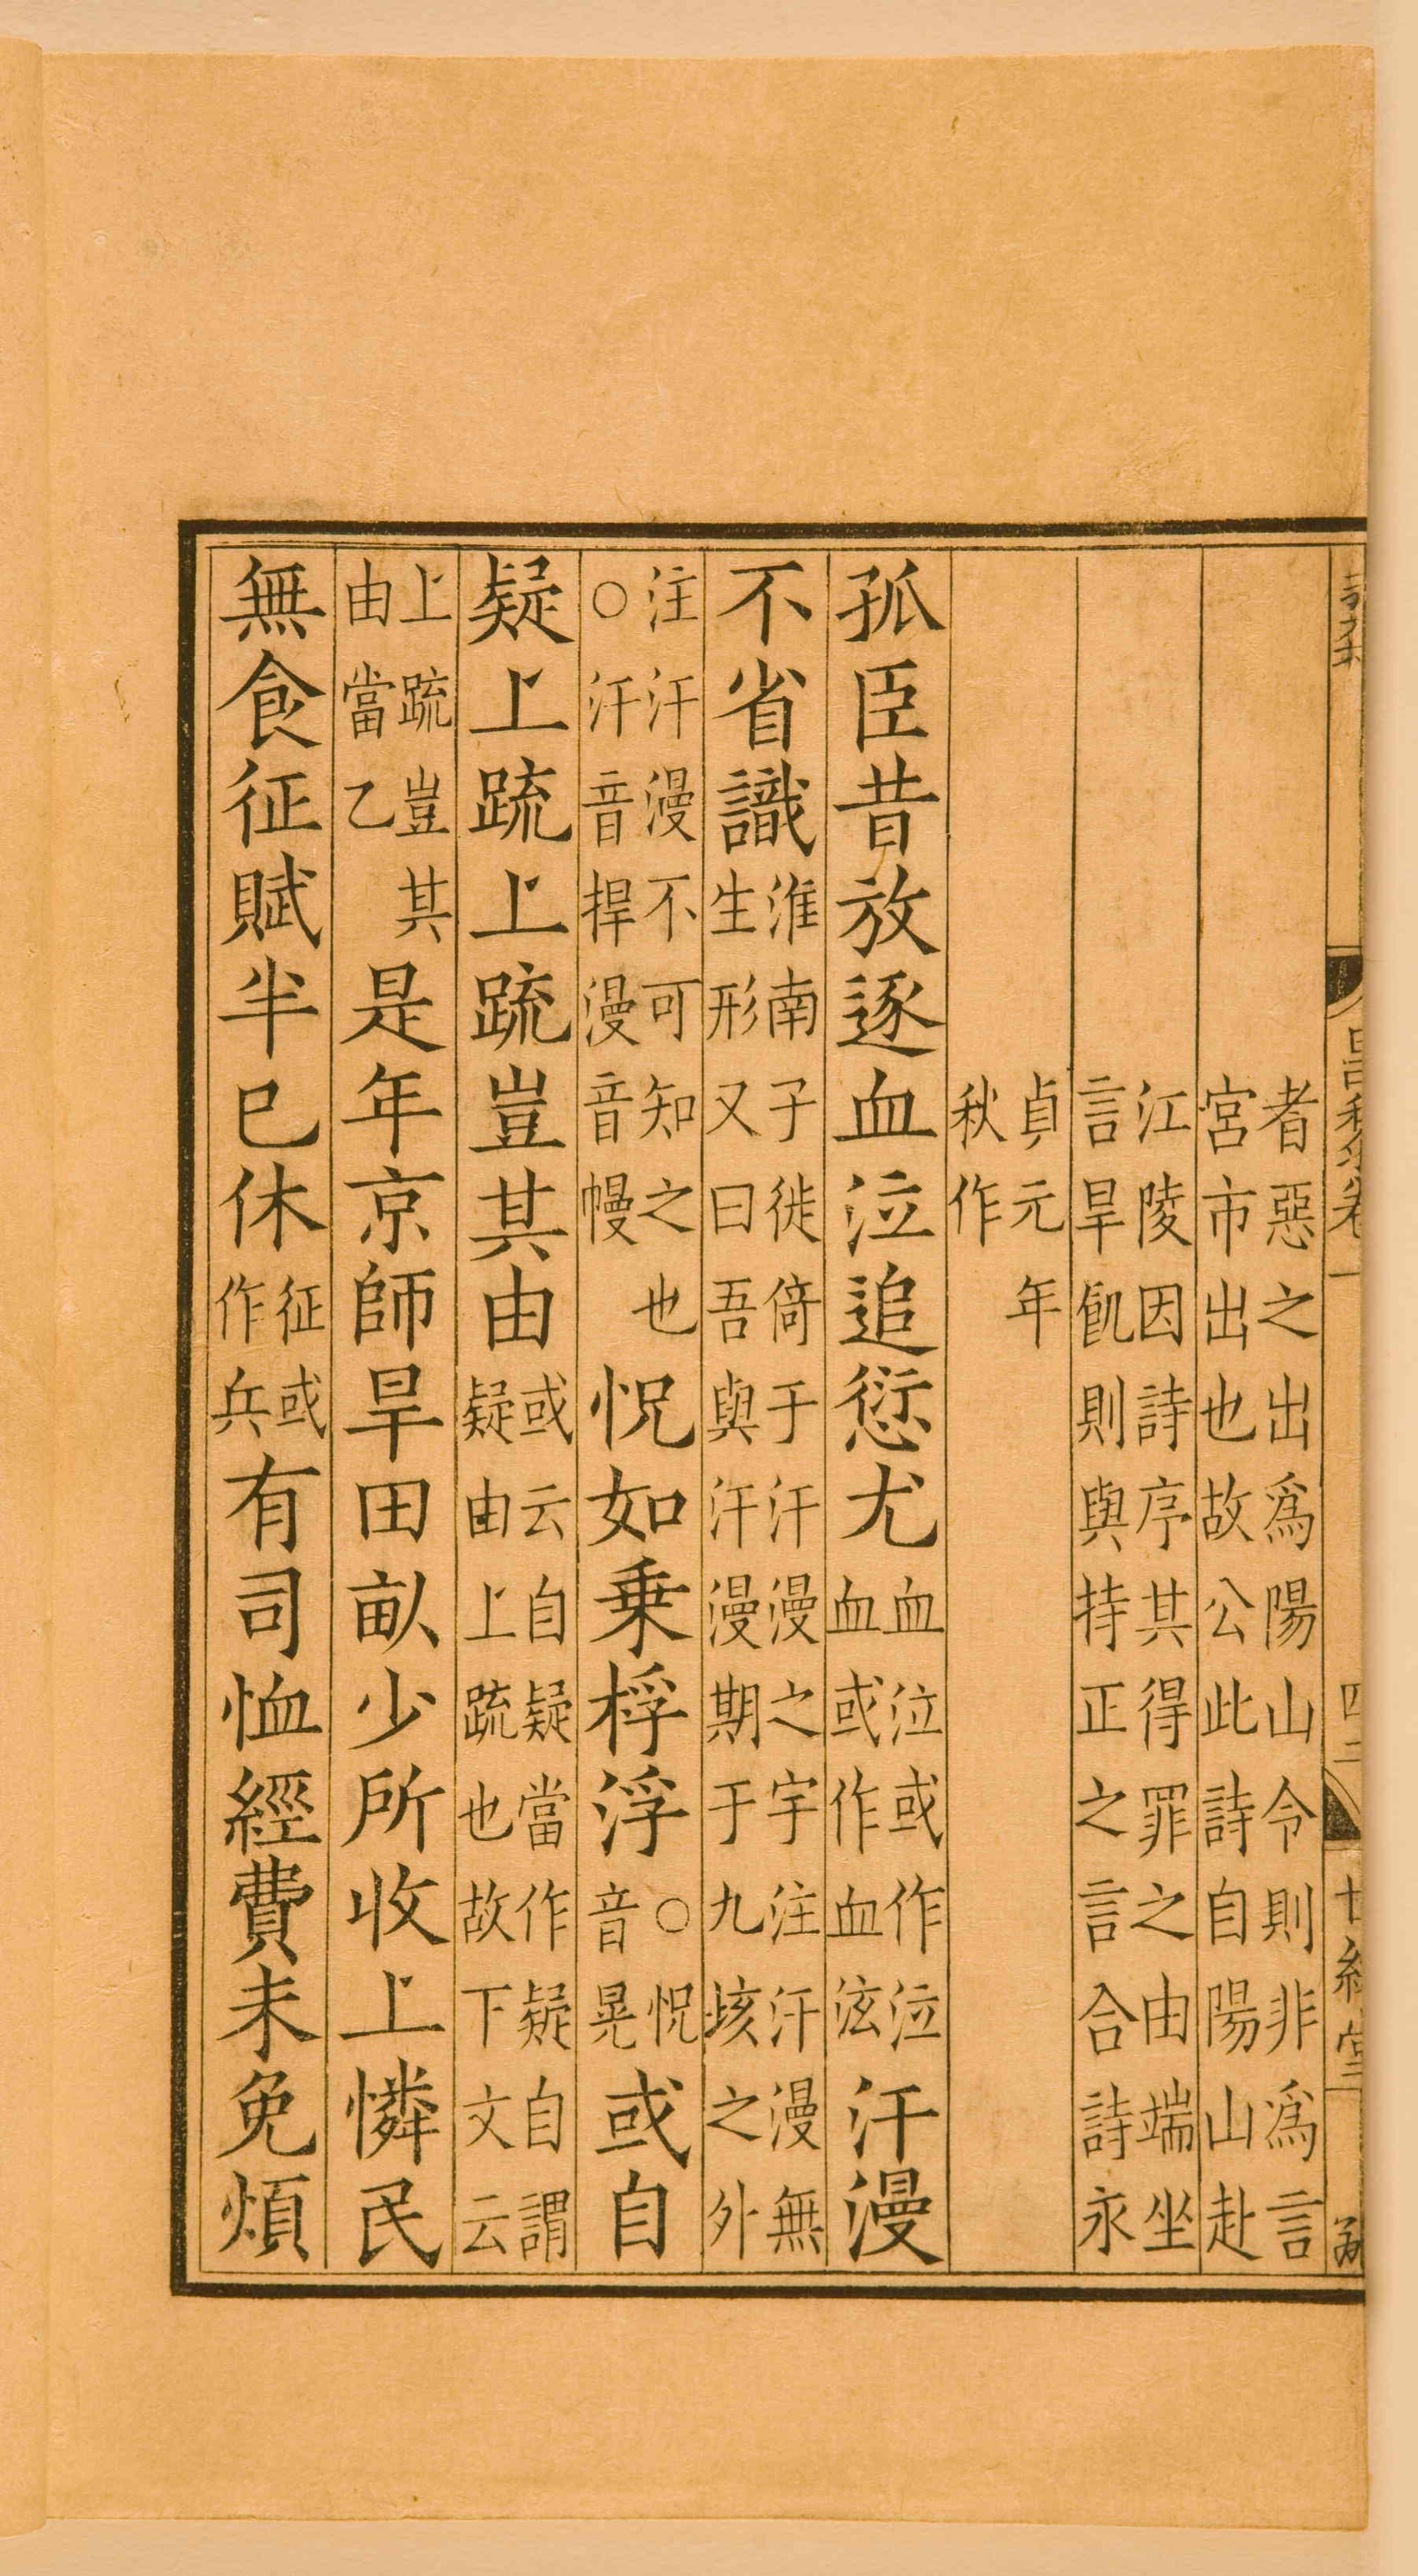 者惡之出爲陽山令則非爲言
宮市出也故公此詩自陽山赴
江陵因詩序其得罪之由端坐
言旱飢則與持正之言合詩永
貞元年
秋作
孤臣昔放逐血泣追愆尤血泣或作泣血或作血泫汗漫
不省識淮南子徙倚于汗漫之宇注汗漫無生形又曰吾與汗漫期于九垓之外
注汗漫不可知之也○汗音捍漫音幔怳如乗桴浮○怳音晃或自
疑上䟽上䟽豈其由或云自疑當作疑自謂疑由上䟽也故下文云
上䟽豈其由當乙是年京師旱田畝少所收上憐民
無食征賦半已休征或作兵有司恤經費未免煩
卷一
四二